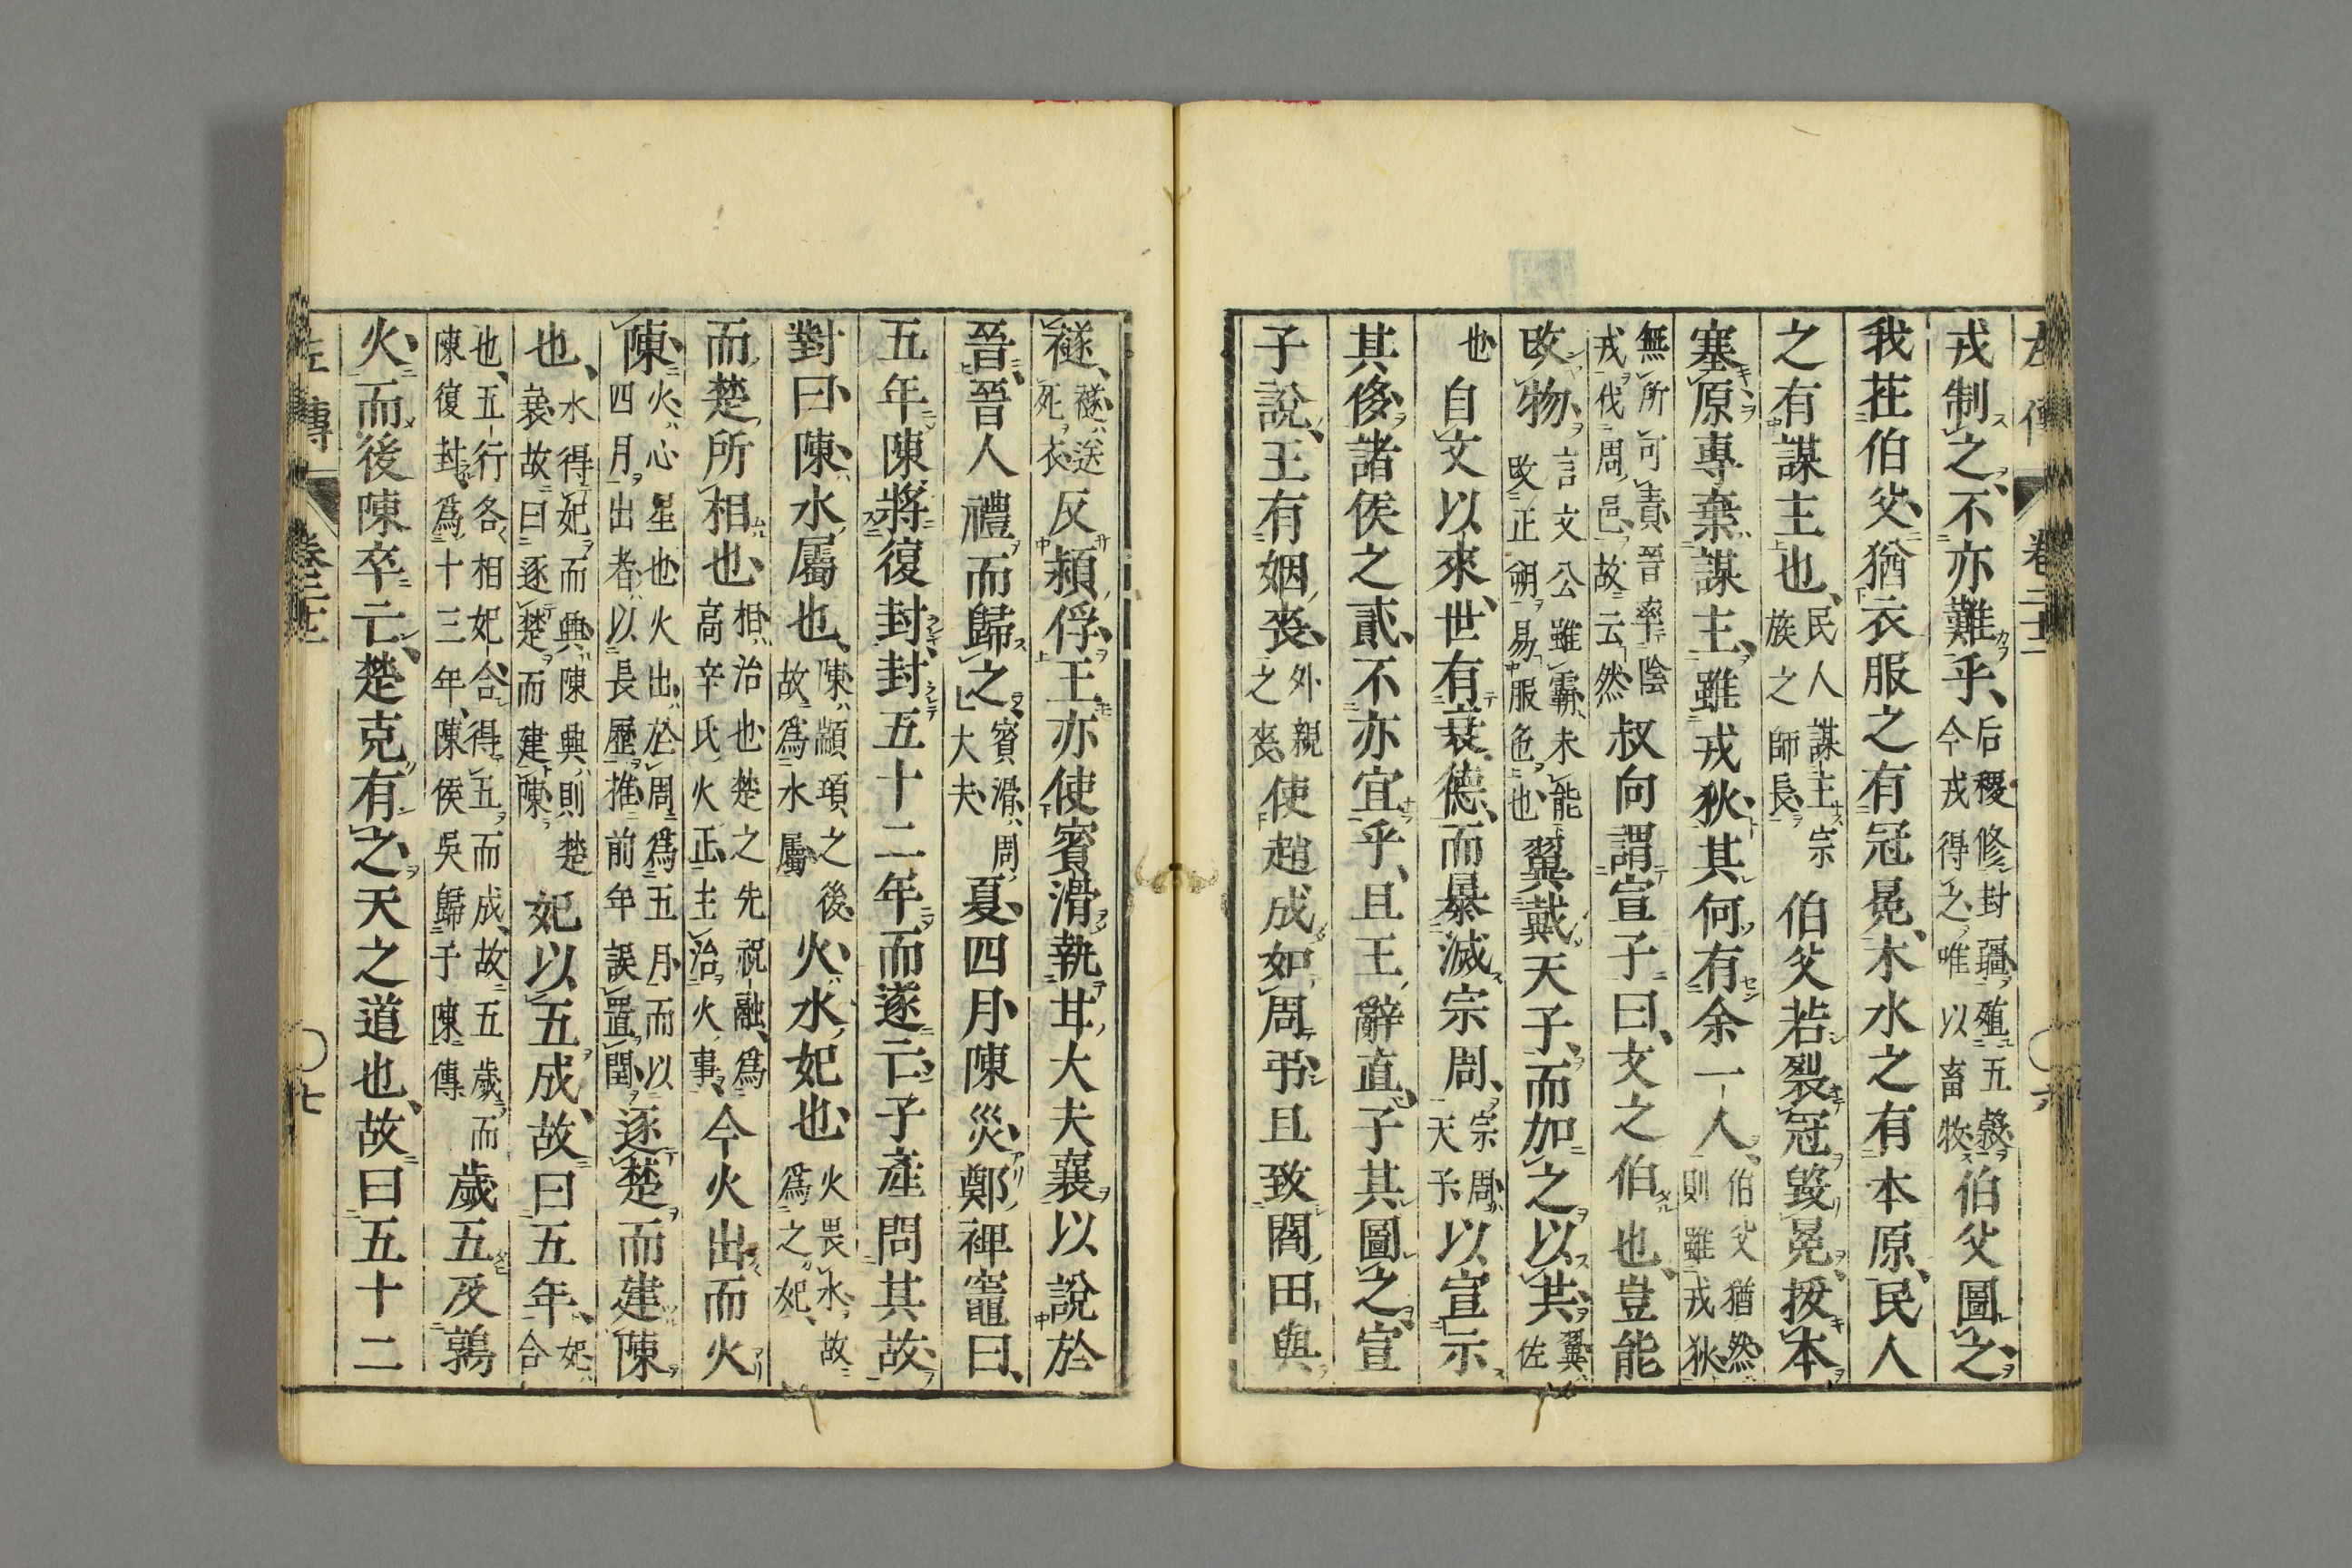 戎制之、不亦難乎、后稷修封疆殖五穀今戎得之唯以畜牧伯父圖之
我在伯父、猶衣服之有冠冕、木水之有本原、民人
之有謀主也、民人謀主宗族之師長伯父若裂冠毀冕、拔本
塞原專棄謀主、雖戎狄其何有余一人、伯父猶然則雖戎狄
無所可責晉率陰戎伐周邑、故云然叔向謂宣子曰、文之伯也、豈能
改物、言文公雖霸未能改正朔易服色也翼戴天子、而加之以共、翼佐
也自文以來、世有衰德、而暴滅宗周、宗周天子以宣示
其侈、諸侯之貳、不亦宜乎、且王辭直、子其圖之、宣
子說、王有姻喪、外親之喪使趙成如周弔、且致閻田與
襚、襚送死衣反潁俘、王亦使賓滑執甘大夫襄以說於
晉、晉人禮而歸之、賓滑周大夫夏、四月陳災、鄭裨竈曰、
五年陳將復封、封五十二年而遂亡、子產問其故、
對曰、陳水屬也、陳顓頊之後故為水屬火水妃也、火畏水故為之妃、
而楚所相也、相治也楚之先祝融、為高辛氏火正主治火事、今火出而火
陳、火心星也火出於周為五月而以四月出者以長歷推前年誤置閏逐楚而建陳
也、水得妃而興陳興則楚衰故曰逐楚而建陳妃以五成、故曰五年、妃合
也、五行各相妃合得五而成、故五歲而陳復封、為十三年、陳侯吳歸于陳傳歲五及鶉
火、而後陳卒亡、楚克有之、天之道也、故曰五十二
左傳 卷二十二 七